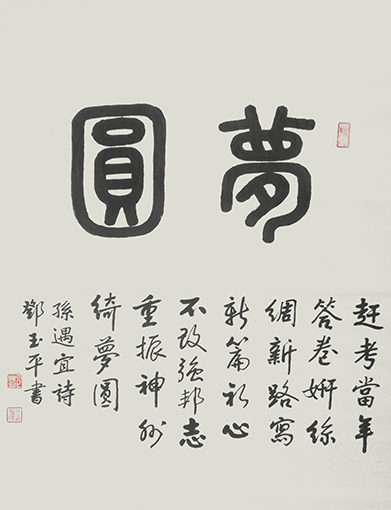 夢圓
赶考當年
答卷妍絲
綢新路寫
新篇初心
不改強邦志
重振神州
綺夢圓
孫遇宜詩
鄧玉平書